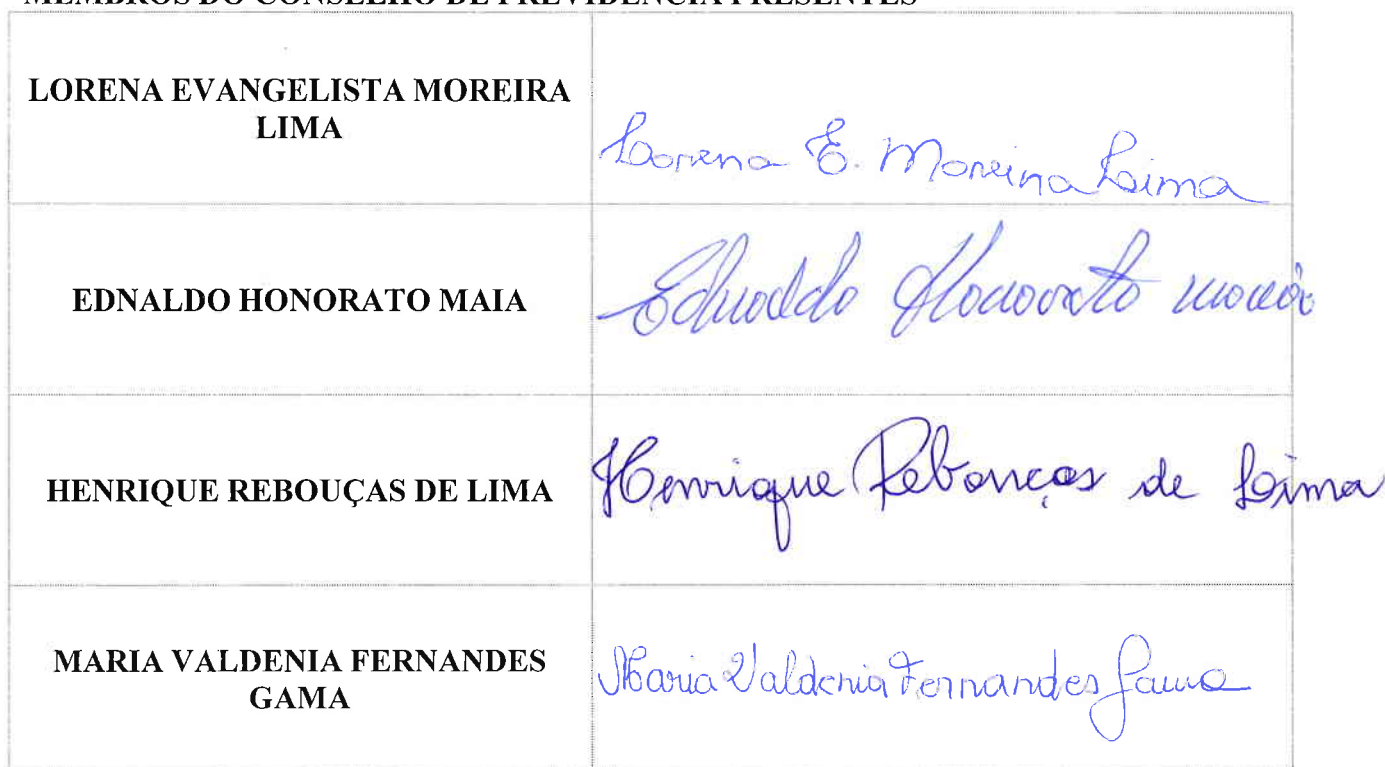 MEMBROS DO CONSELHO DE PREVIDÊNCIA PRESENTES
LORENA EVANGELISTA MOREIRA
LIMA
Lorena E. Moreira Lima
EDNALDO HONORATO MAIA
Ednaldo Honorato Maia
HENRIQUE REBOUÇAS DE LIMA
Henrique Rebouças de Lima
MARIA VALDENIA FERNANDES
GAMA
Maria Valdenia Fernandes Gama